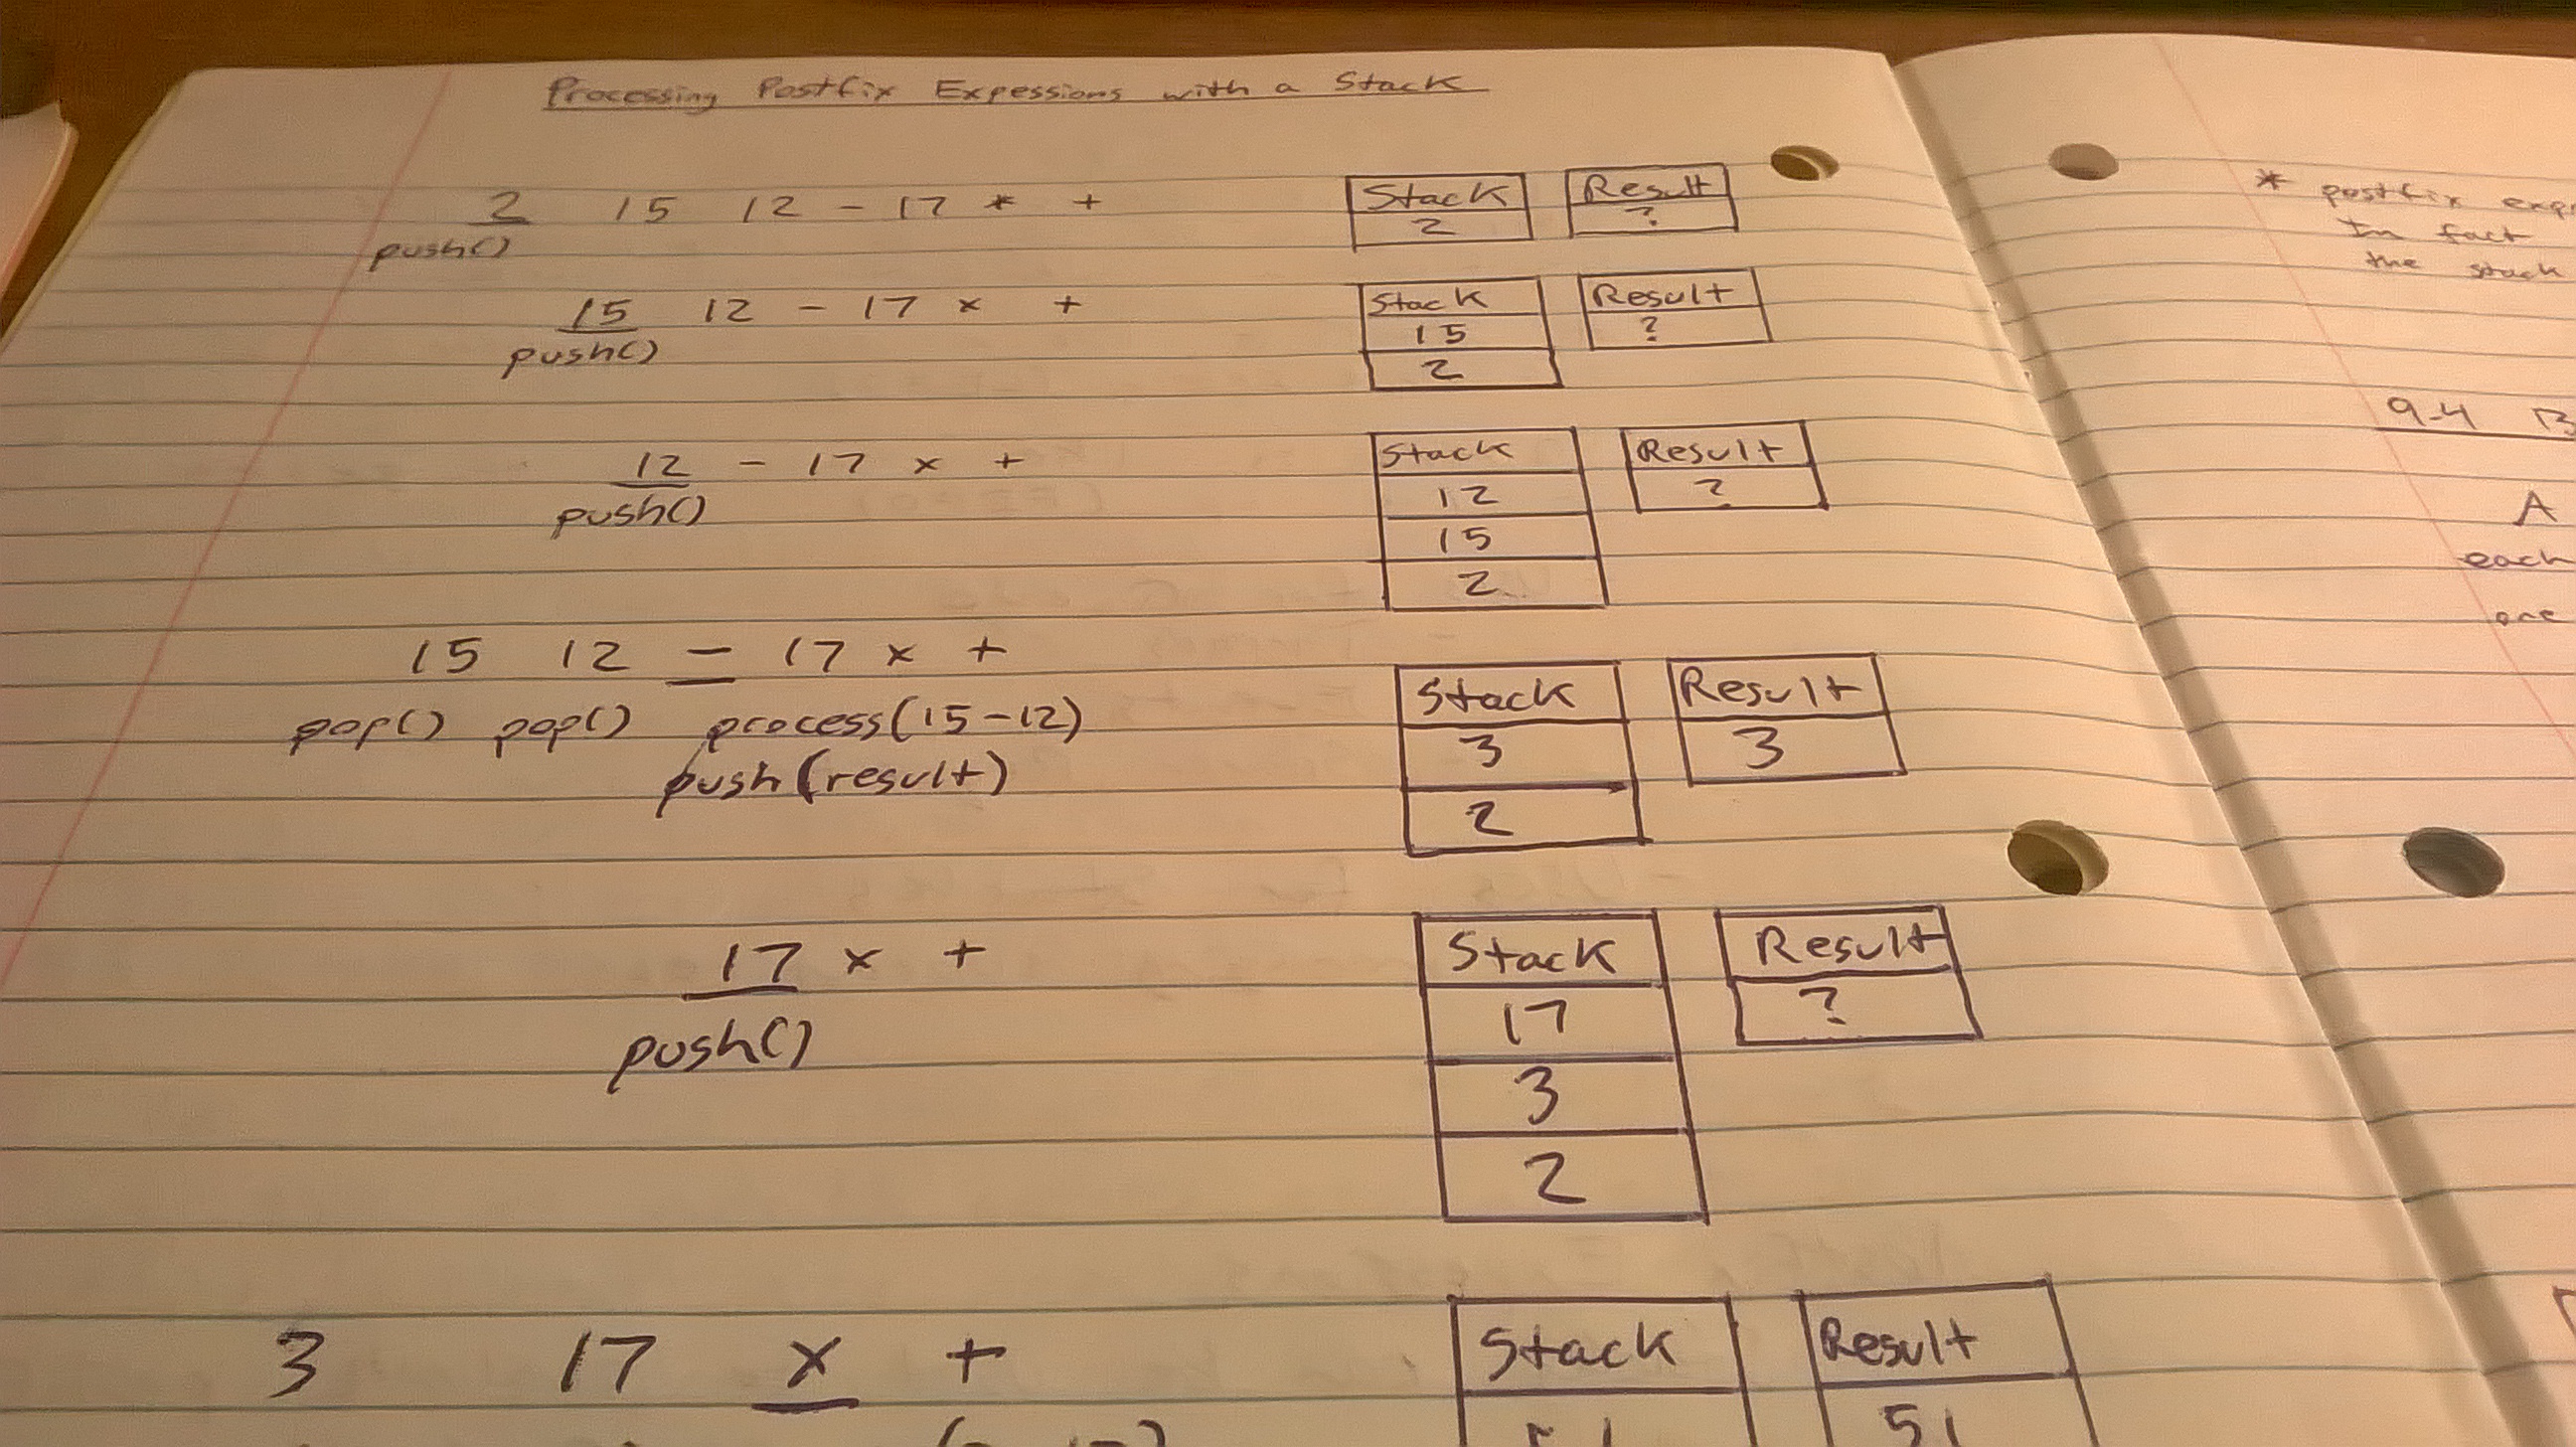 Processing Postfix Expessions with a Stack
2 15 12 - 17 * +
push()
Stack
2
Result
?
15 12 - 17 x +
push()
Stack
15
2
Result
?
12 - 17 x +
push()
Stack
12
15
2
Result
?
15 12 - 17 x +
pop() pop() process(15-12)
push(result)
Stack
3
2
Result
3
17 x +
push()
Stack
17
3
2
Result
?
3 17 x +
Stack
51
Result
51
* postfix
In fact
the stack
9-4
A
each
one